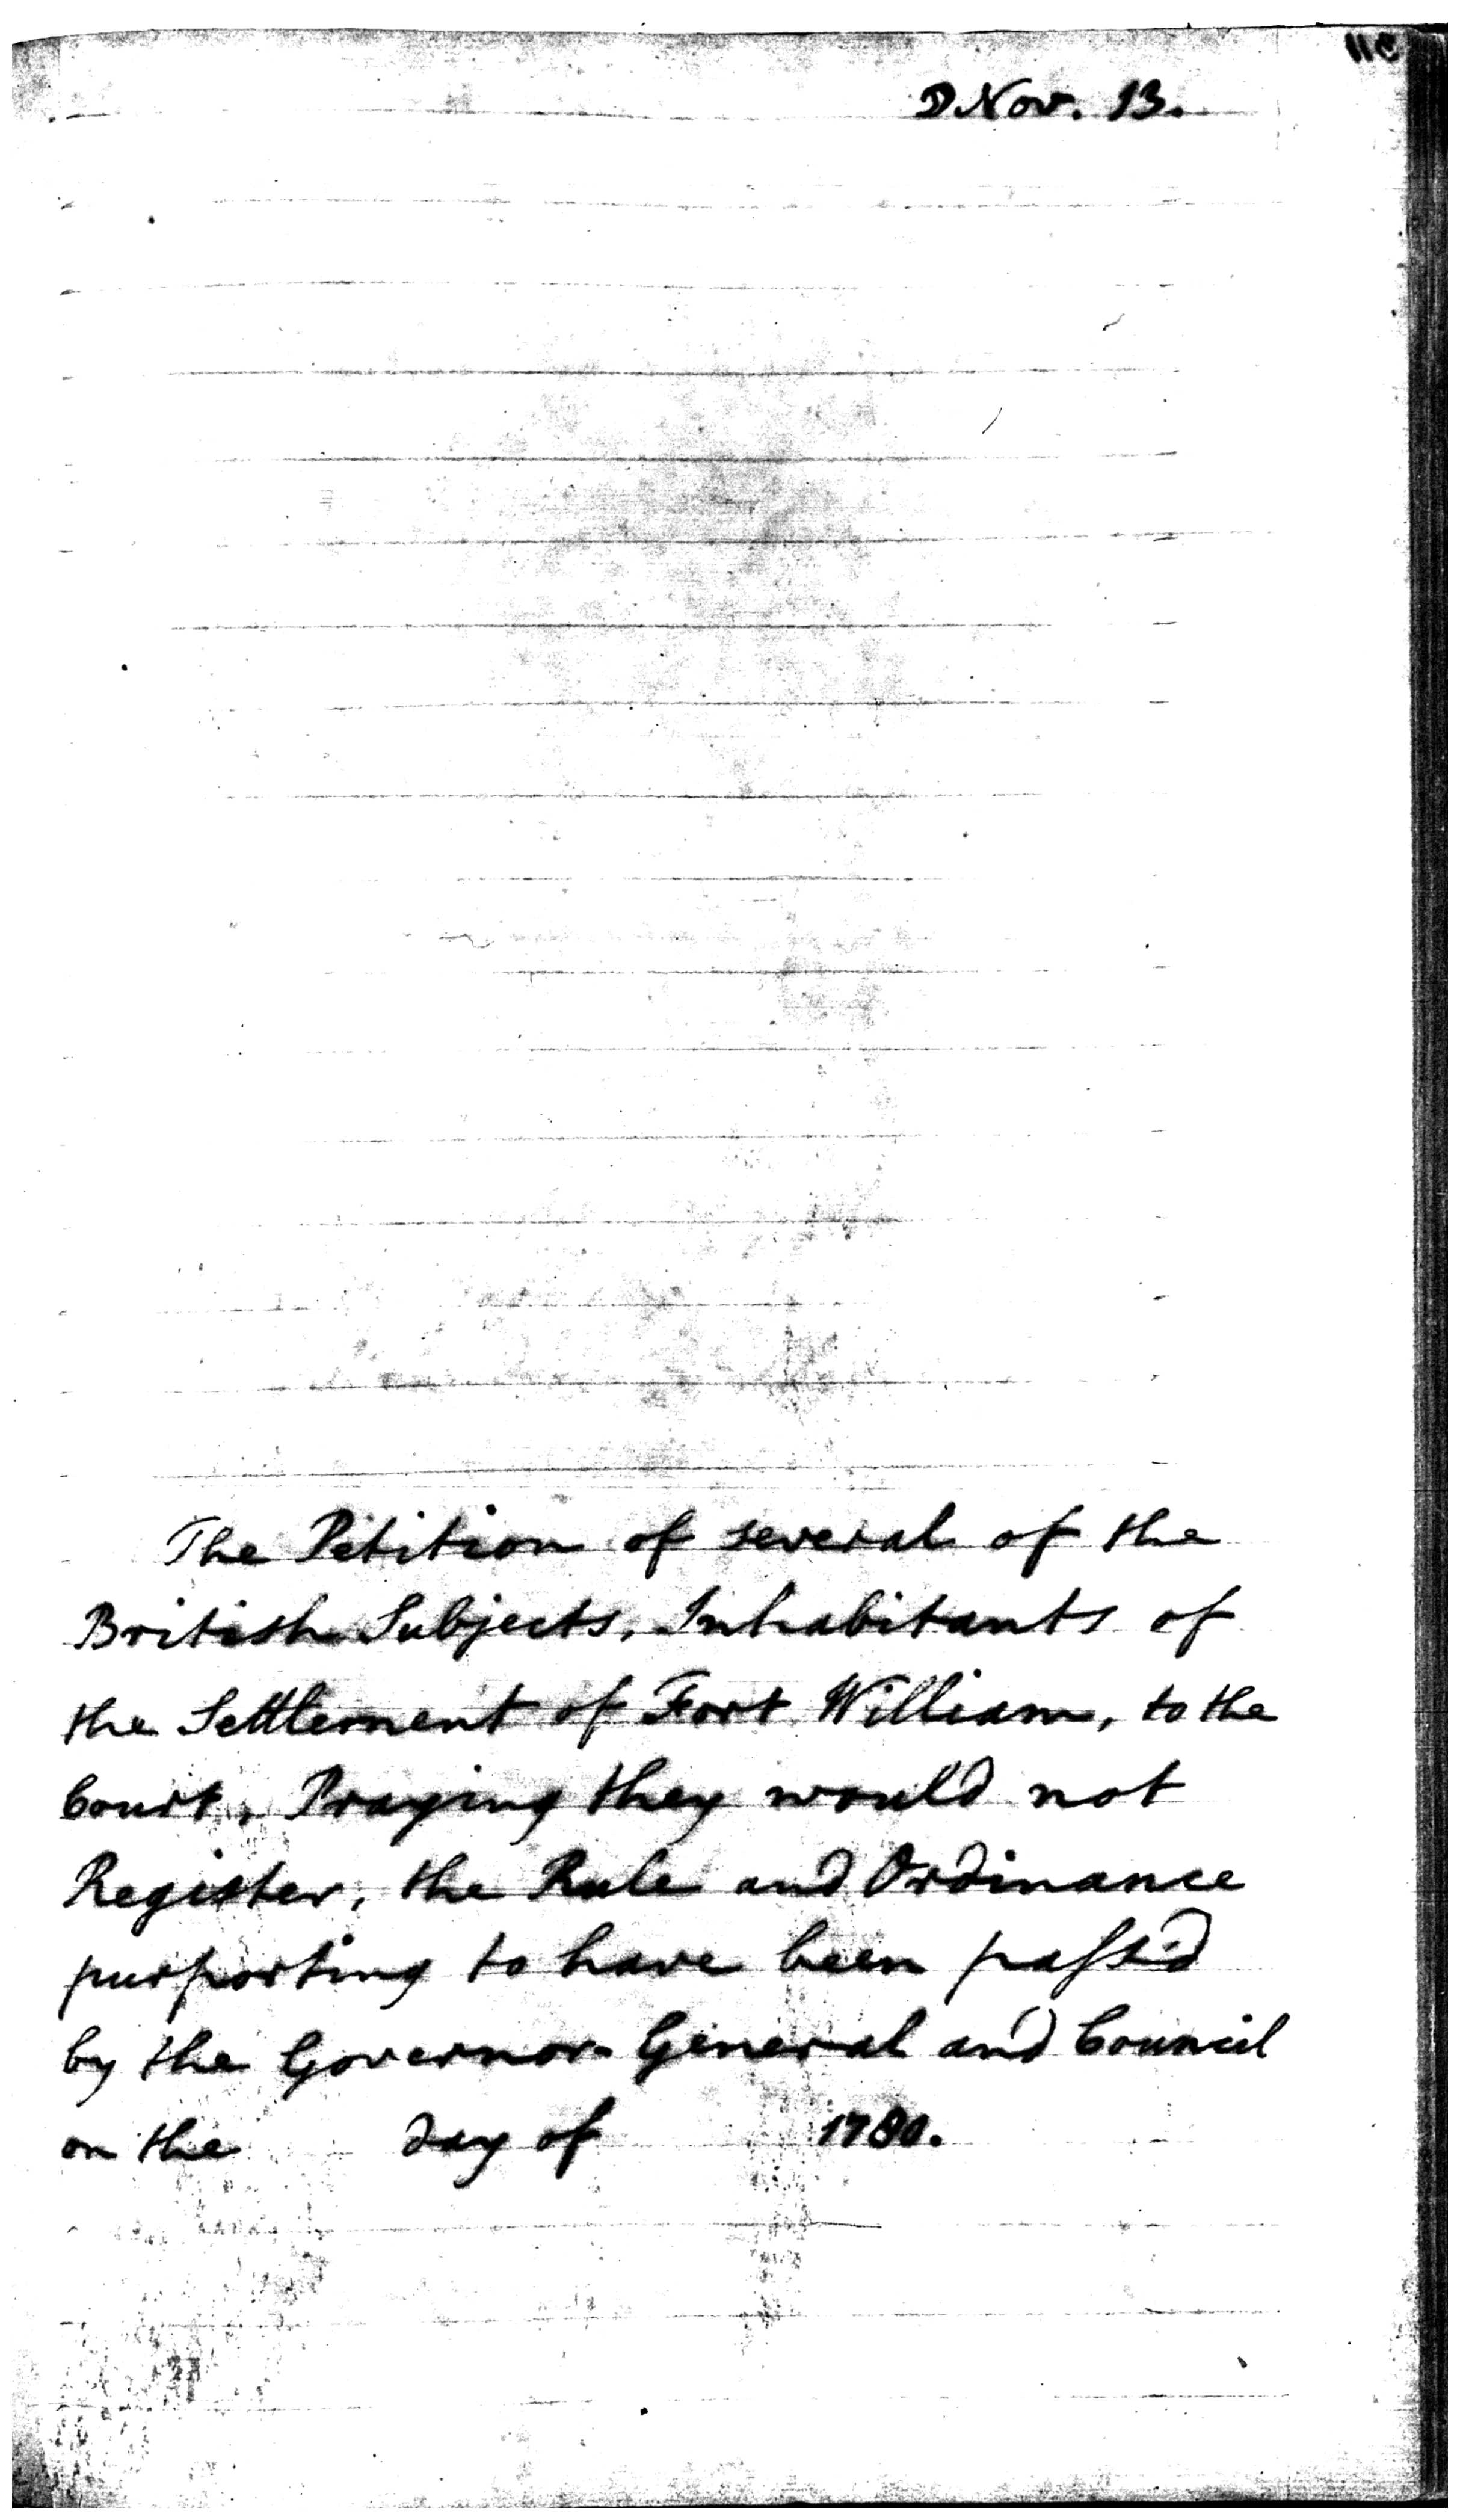 D Nov. 13.
The Petition of several of the
British Subjects, Inhabitants of
the Settlement of Fort William, to the
Court, Praying they would not
Register, the Rule and Ordinance
purporting to have been passed
by the Governor General and Council
on the day of 1780.